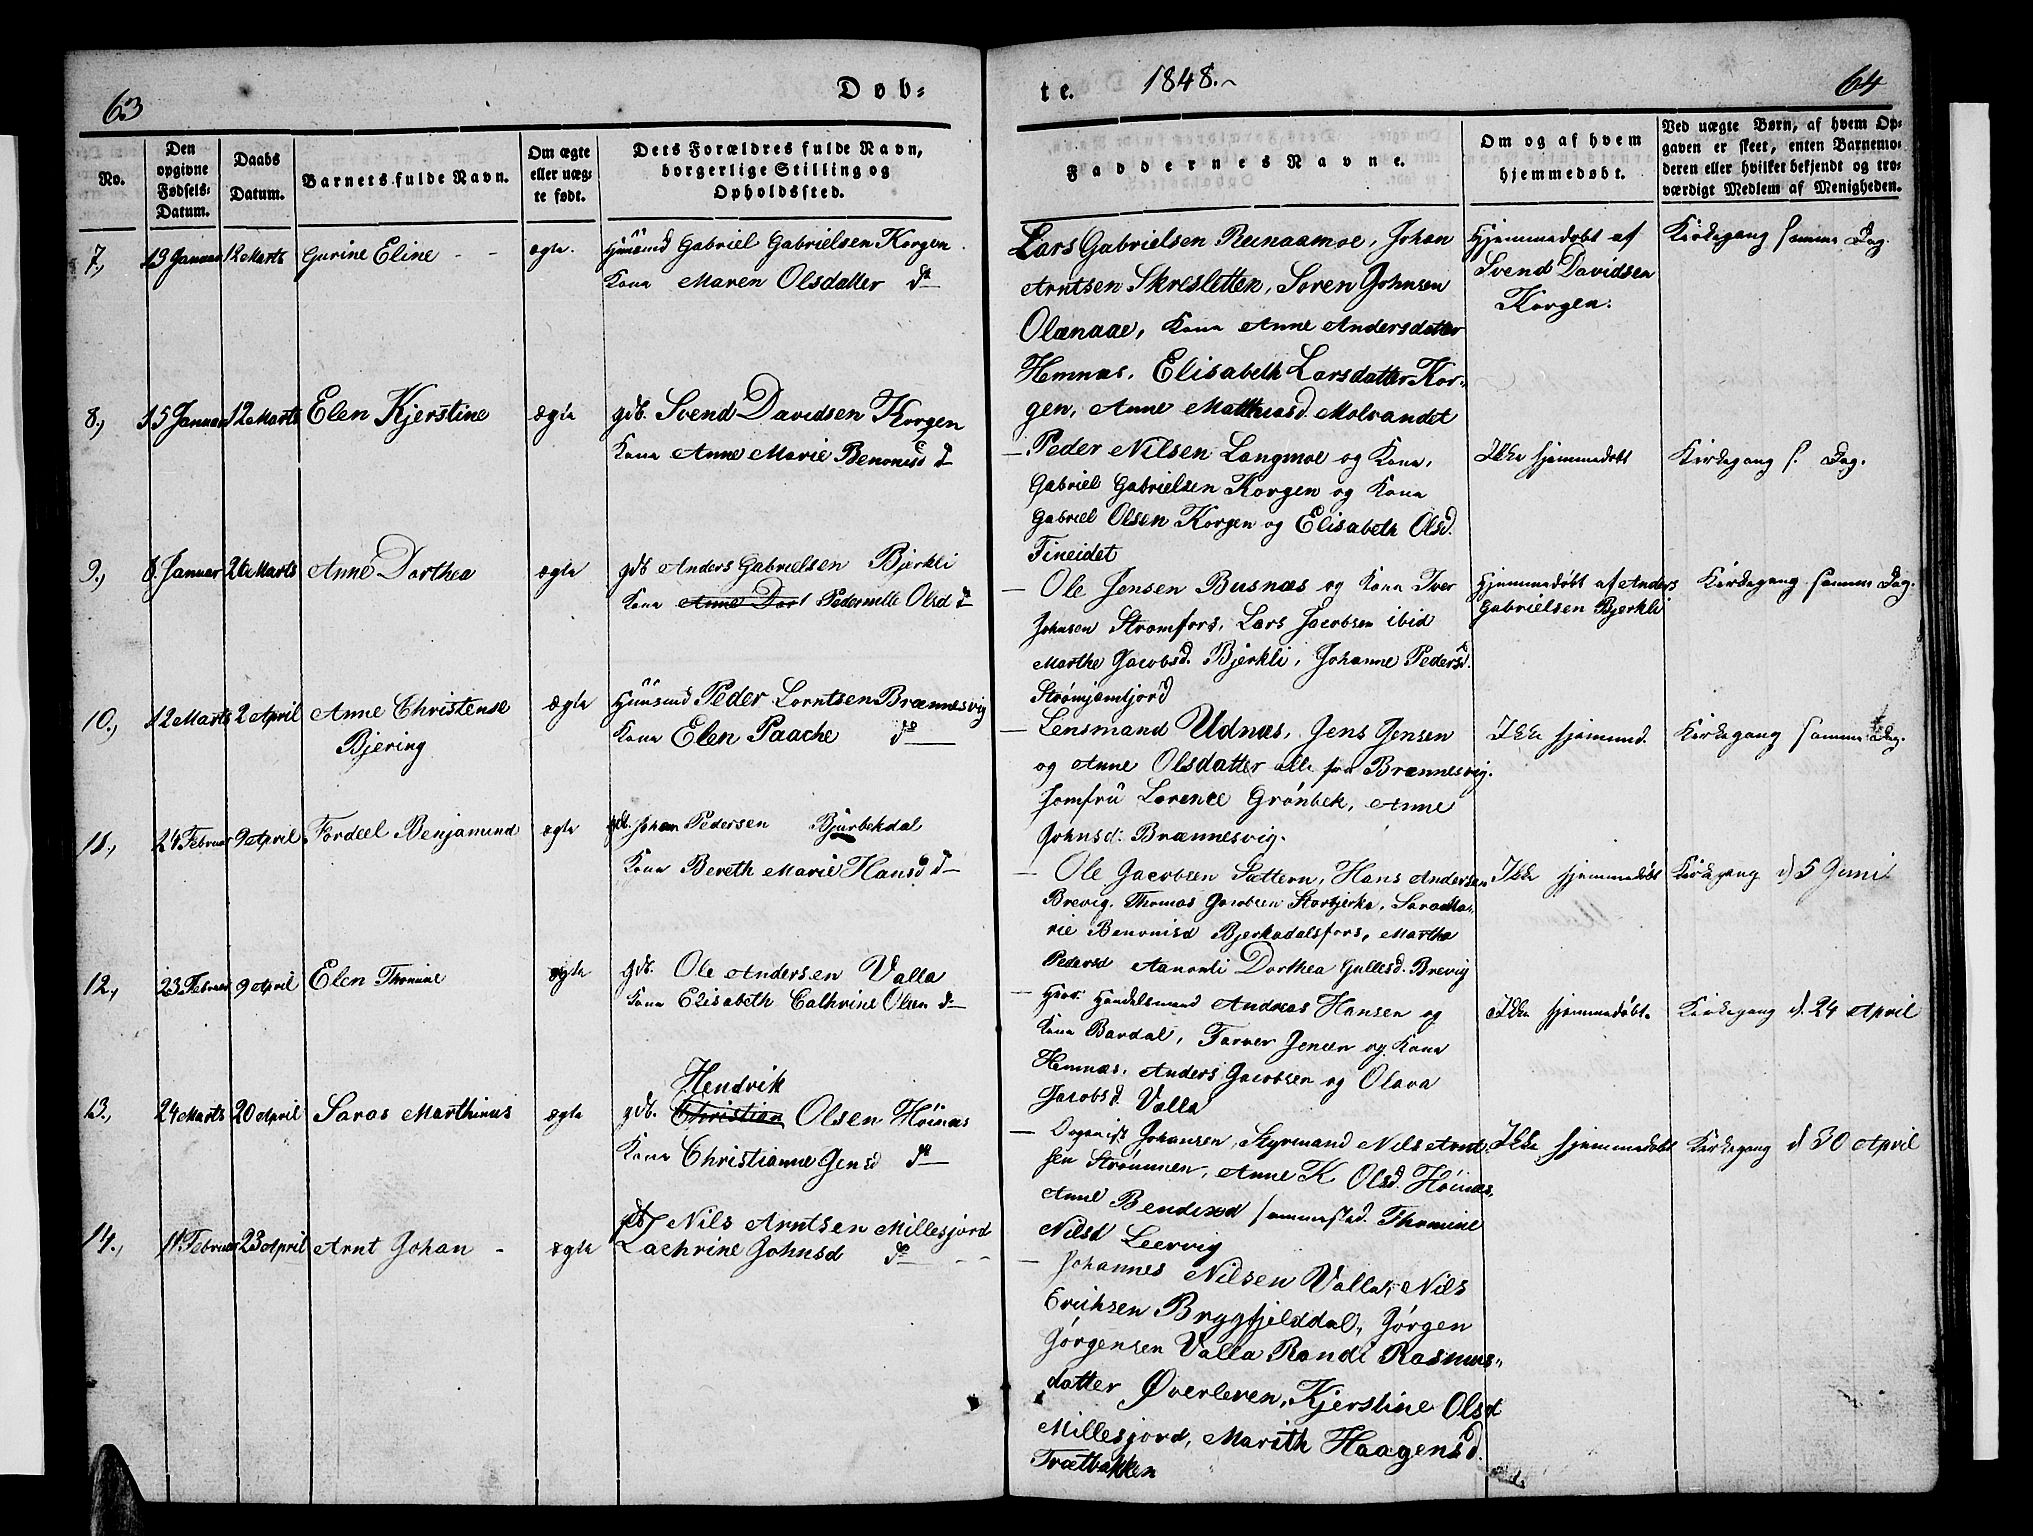 63
Døb-
te.
1848.
64
No.
Den opgivne Fødsels-Datum.
Daabs Datum.
Barnets fulde Navn.
Om ægte eller uæg-te født.
Dets Forældres fulde Navn, borgerlige Stilling og Opholdssted.
Faddernes Navne.
Om og af hvem hjemmedøbt.
Ved uægte Børn, af hvem Op-gaven er skeet, enten Barnemo-deren eller hvilket bekjendt og tro-værdigt Medlem af Menigheden.
7, 13 Januar 12 Marts Gurine Eline - - ægte. Huusmd Gabriel Gabrielsen Korgen
Kone Maren Olsdatter do
Lars Gabrielsen Runaamoe, Johan
Arntsen Skresletten, Søren Johnsen
Olænaae, Kone Anne Andersdatter
Hemnæs, Elisabeth Larsdatter Kor-
gen, Anne Matthiasd Molvandet
Hjemmedøbt af
Svend Davidsen
Korgen.
Kirkegang samme Dag.
8, 15 Januar 12 Marts Elen Kjerstine ægte gdb. Svend Davidsen Korgen
Kone Anne Marie Benonisd do
- Peder Nilsen Langmoe og Kone,
Gabriel Gabrielsen Korgen og Kone
Gabriel Olsen Korgen og Elisabeth Olsd.
Fineidet
Ikke hjemmedøbt
Kirkegang s. Dag.
9, 8 Januar 26 Marts Anne Dorthea ægte gdb Anders Gabrielsen Bjerkli
Kone Anne Dort Pedernille Olsd do
- Ole Jensen Busnæs og Kone Iver
Johnsen Stromfors, Lars Jacobsen ibid
Marthe Jacobsd. Bjerkli, Johanne Pedersd.
Hjemmedøbt af Anders
Gabrielsen Bjerkli
Kirkegang samme Dag.
10, 12 Marts 2 April Anne Christense
Bjering
ægte Huusmd Peder Lorntsen Brænnesvig
Kone Elen Paache do
- Lensmand Udnæs, Jens Jensen
og Anne Olsdatter alle fra Brænnesvig.
Jomfru Lorence Grønbek, Anne
Johnsd: Brænnesvig.
Ikke hjemmd.
Kirkegang samme Dag.
11, 24 Februar 9 April Fordeel Benjamind ægte gdb. Johan Pedersen Bjurbekdal
Kone Bereth Marie Hansd do
- Ole Jacobsen Sættern, Hans Andersen
Brevig, Thomas Jacobsen Storbjerka, Sara Ma-
rie Benonisd Bjerkadalsfors, Martha
Pedersd Aanonli Dorthea Gullesd. Brevig
Ikke hjemmedøbt
Kirkegang d 5 Juni
12, 23 Februar 9 April Elen Thomine ægte gdb. Ole Andersen Valla
Kone Elisabeth Cathrine Olsen do
- Handelsmand Andreas Hansen og
Kone Bardal, Farver Jensen og Kone
Hemnæs, Anders Jacobsen og Olava
Jacobsd. Valla
Ikke hjemmedøbt.
Kirkegang d. 24 April
13, 24 Marts 20 April Saras Marthinus ægte gdb. Hendrik
Christian Olsen Høinæs
Kone Christianne Jensd do
- Organist Johansen, Styrmand Nils Arnt-
sen Strømmen, Anne K Olsd. Høinæs,
Anne Bendixd sammested. Thomine
Nilsd Leervig
Ikke hjemmedøbt
Kirkegang d 30 April
14, 11 Februar 23 April Arnt Johan - ægte gdb Nils Arntsen Millesjord
Zachrine Johnsd do - -
- Johannes Nilsen Valla, Nils
Erichsen Bryggfjelddal, Jørgen
Jørgensen Valla Randi Rasmus-
datter Øverleren, Kjerstine Olsd
Millesjord, Marith Haagensd.
Trætbakken